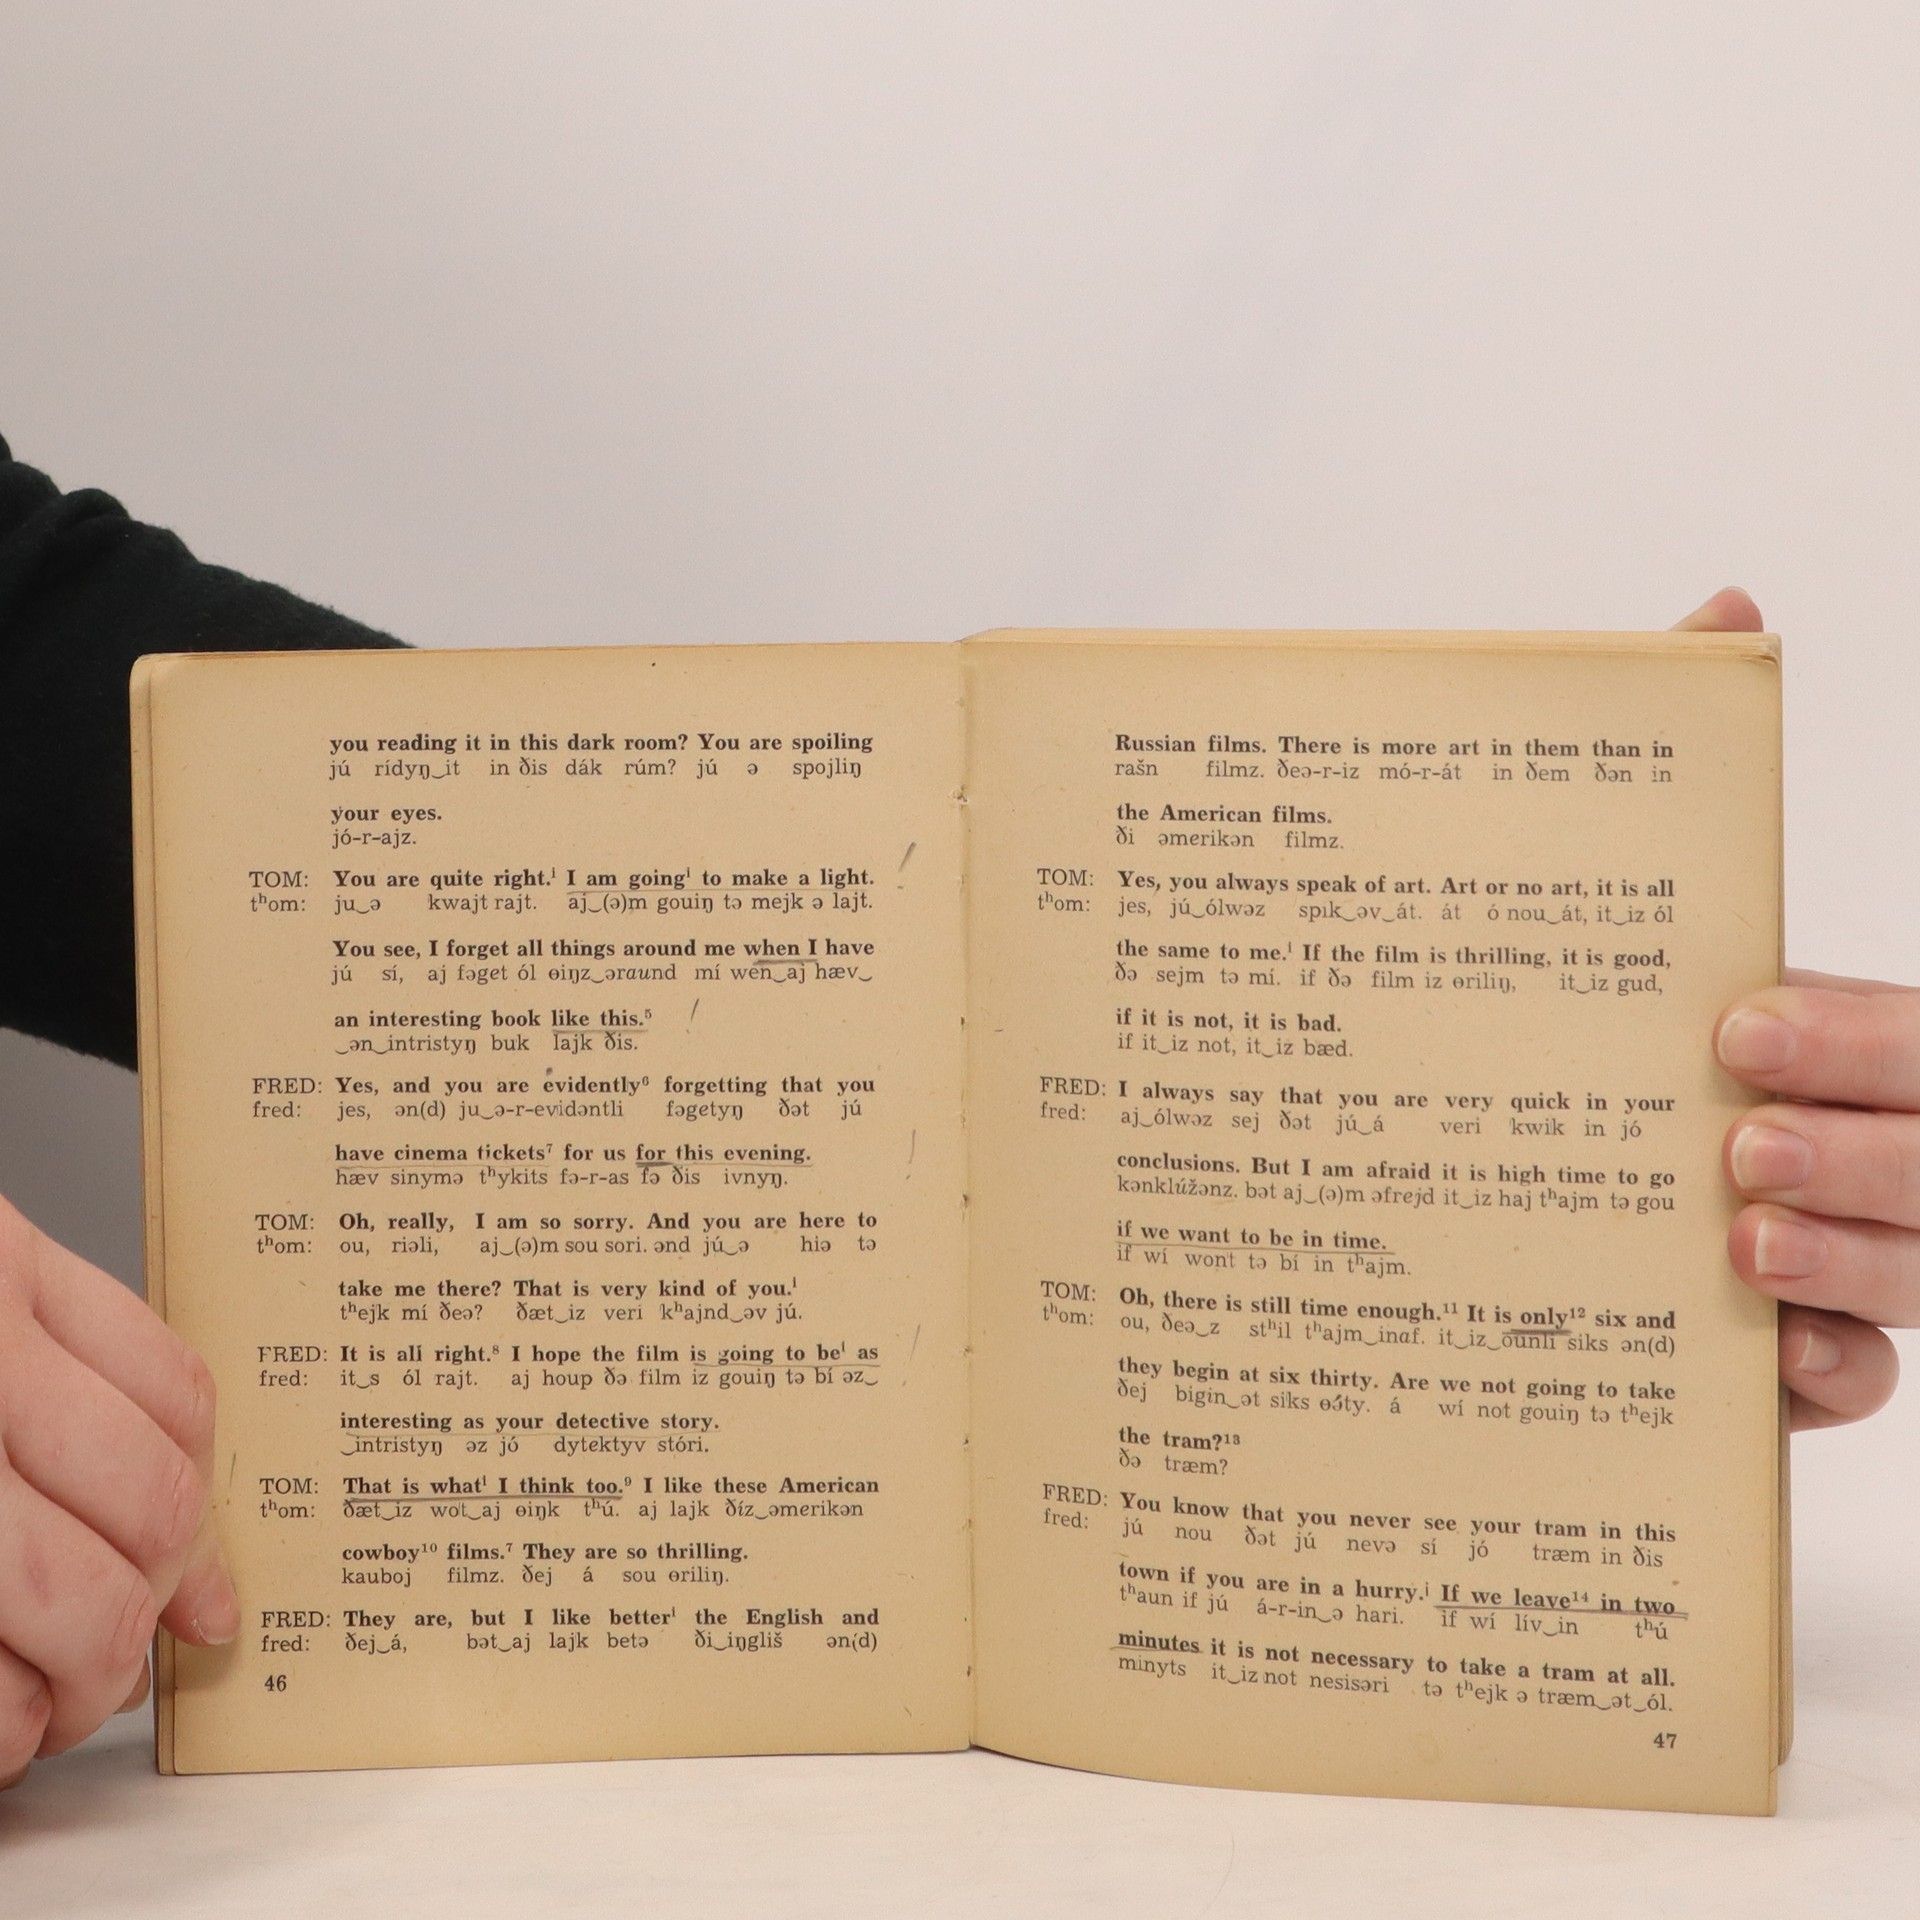 you reading it in this dark room? You are spoiling
jú rídyŋ‿it in ðis dák rúm? jú ə spojliŋ
your eyes.
jó-r-ajz.
TOM: You are quite right.ⁱ I am goingⁱ to make a light.
tʰom: ju‿ə kwajt rajt. aj‿(ə)m gouiŋ tə mejk ə lajt.
You see, I forget all things around me when I have
jú sí, aj fəget ól ɵiŋz‿əraund mí wen‿aj hæv‿
an interesting book like this.⁵
‿ən‿intristyŋ buk lajk ðis.
FRED: Yes, and you are evidently⁶ forgetting that you
fred: jes, ən(d) ju‿ə-r-evidəntli fəgetyŋ ðət jú
have cinema tickets⁷ for us for this evening.
hæv sinymə tʰykits fə-r-as fə ðis ivnyŋ.
TOM: Oh, really, I am so sorry. And you are here to
tʰom: ou, riəli, aj‿(ə)m sou sori. ənd jú‿ə hiə tə
take me there? That is very kind of you.ⁱ
tʰejk mí ðeə? ðæt‿iz veri kʰajnd‿əv jú.
FRED: It is all right.⁸ I hope the film is going to beⁱ as
fred: it‿s ól rajt. aj houp ðə film iz gouiŋ tə bí əz‿
interesting as your detective story.
‿intristyŋ əz jó dytektyv stóri.
TOM: That is whatⁱ I think too.⁹ I like these American
tʰom: ðæt‿iz wot‿aj ɵiŋk tʰú. aj lajk ðíz‿əmerikən
cowboy¹⁰ films.⁷ They are so thrilling.
kauboj filmz. ðej á sou ɵriliŋ.
FRED: They are, but I like betterⁱ the English and
fred: ðej‿á, bət‿aj lajk betə ði‿iŋgliš ən(d)
46
Russian films. There is more art in them than in
rašn filmz. ðeə-r-iz mó-r-át in ðem ðən in
the American films.
ði əmerikən filmz.
TOM: Yes, you always speak of art. Art or no art, it is all
tʰom: jes, jú‿ólwəz spik‿əv‿át. át ó nou‿át, it‿iz ól
the same to me.ⁱ If the film is thrilling, it is good,
ðə sejm tə mí. if ðə film iz ɵriliŋ, it‿iz gud,
if it is not, it is bad.
if it‿iz not, it‿iz bæd.
FRED: I always say that you are very quick in your
fred: aj‿ólwəz sej ðət jú‿á veri kwik in jó
conclusions. But I am afraid it is high time to go
kənklúžənz. bət aj‿(ə)m əfrejd it‿iz haj tʰajm tə gou
if we want to be in time.
if wí wont tə bí in tʰajm.
TOM: Oh, there is still time enough.¹¹ It is only¹² six and
tʰom: ou, ðeə‿z stʰil tʰajm‿inaf. it‿iz‿ounli siks ən(d)
they begin at six thirty. Are we not going to take
ðej bigin‿ət siks ɵə́ty. á wí not gouiŋ tə tʰejk
the tram?¹³
ðə træm?
FRED: You know that you never see your tram in this
fred: jú nou ðət jú nevə sí jó træm in ðis
town if you are in a hurry.ⁱ If we leave¹⁴ in two
tʰaun if jú á-r-in‿ə hari. if wí lív‿in tʰú
minutes it is not necessary to take a tram at all.
minyts it‿iz not nesisəri tə tʰejk ə træm‿ət‿ól.
47